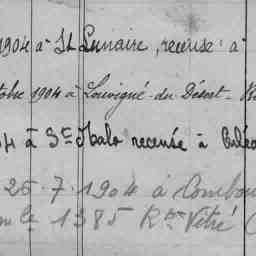 1904 à St Lunaire, recensé à
tobre 1904 à Louvigné-du-Désert-
à St Malo recensé à
25.7.1904 à Combou
le 1385 Rt Vitré (